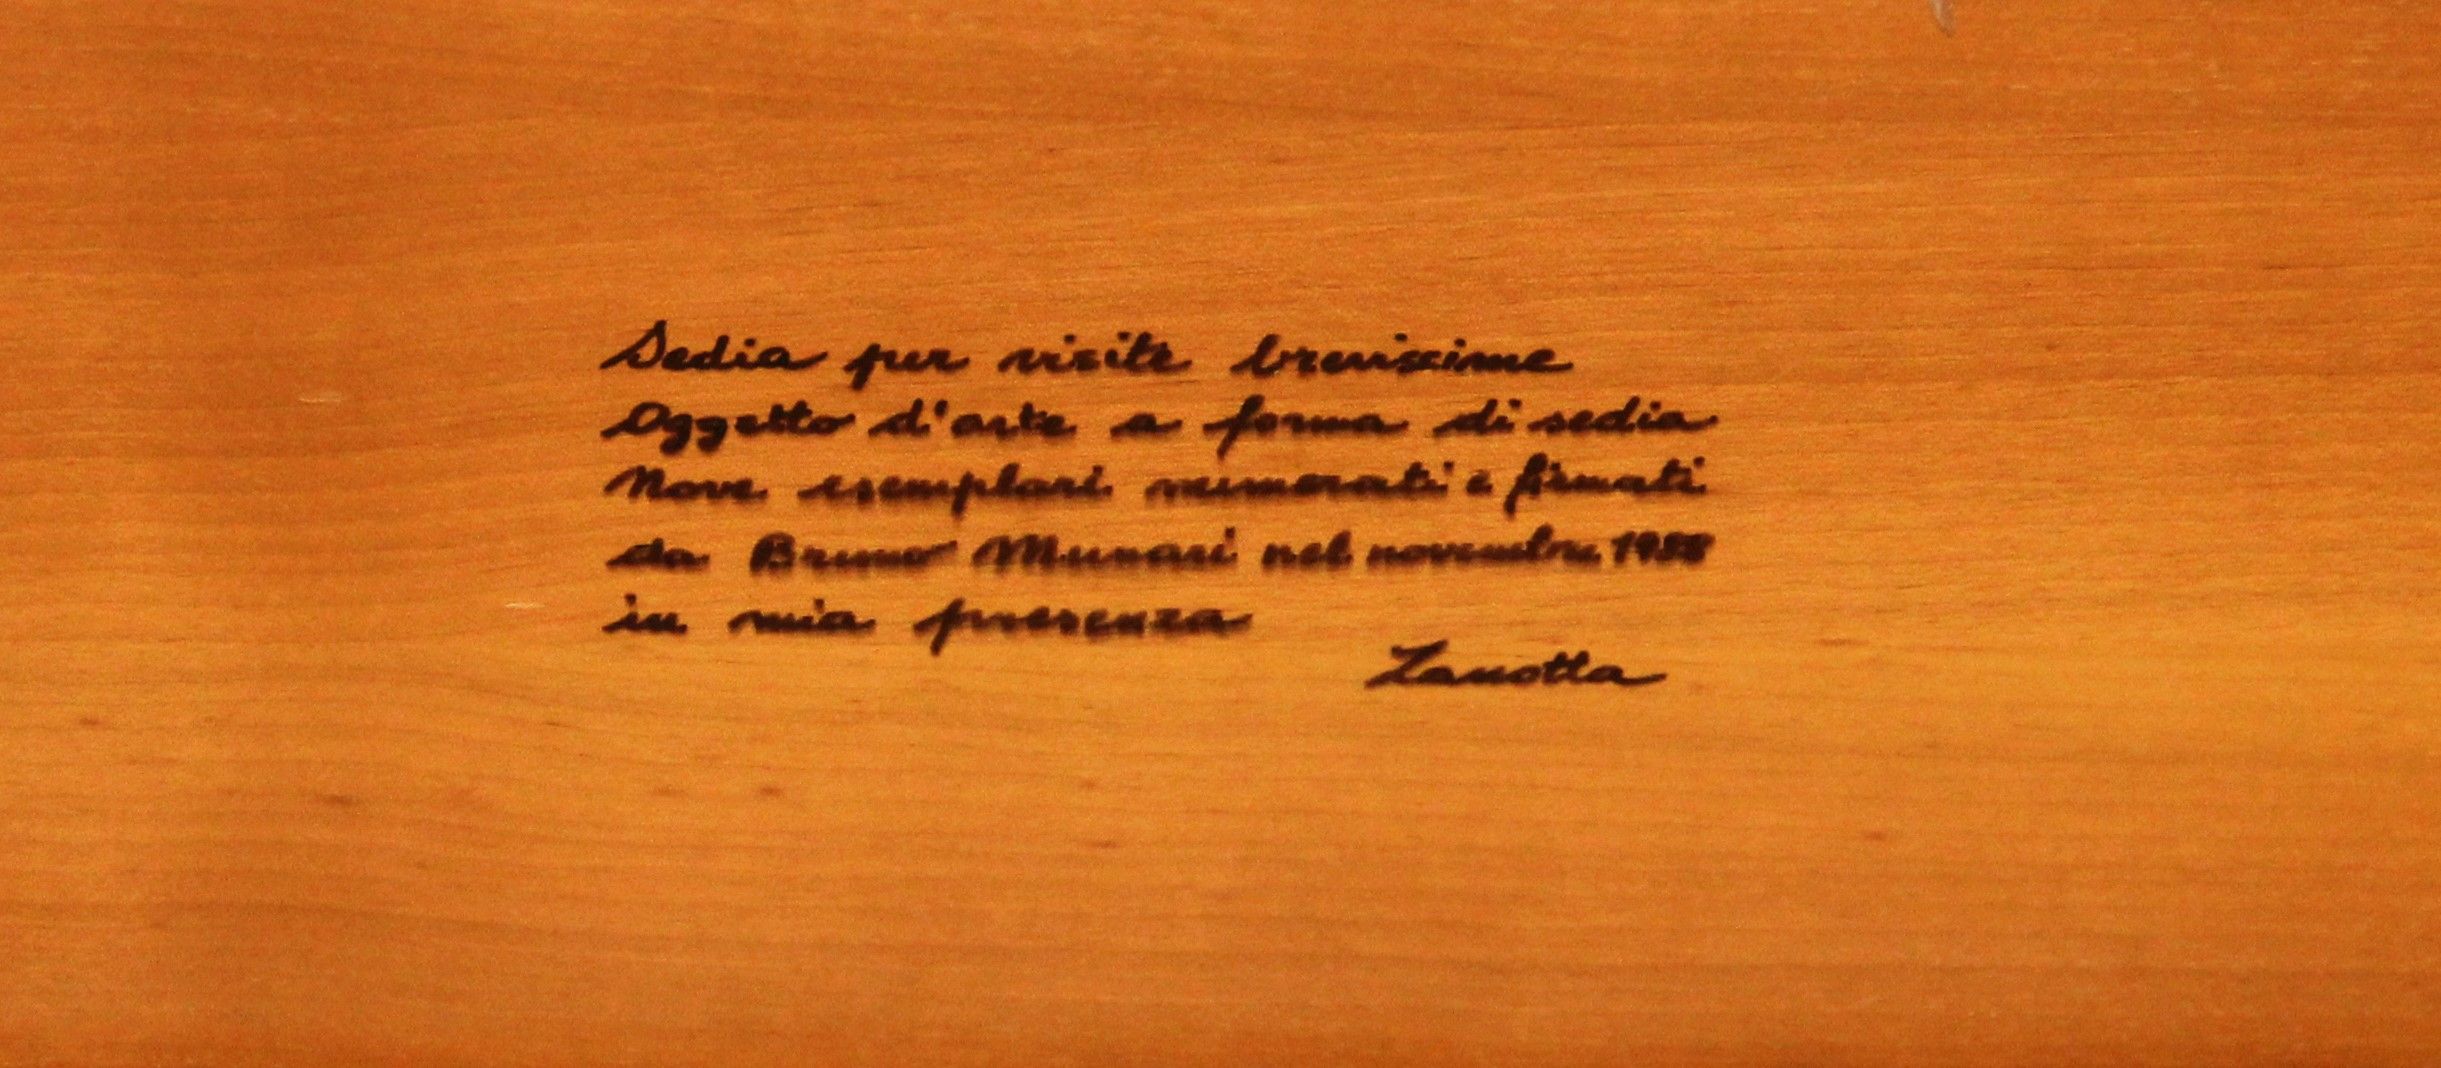 Sedia per visite brevissime
Oggetto d'arte a forma di sedia
Nove esemplari numerati e firmati
da Bruno Munari nel novembre 1988
in mia presenza
Zanotta